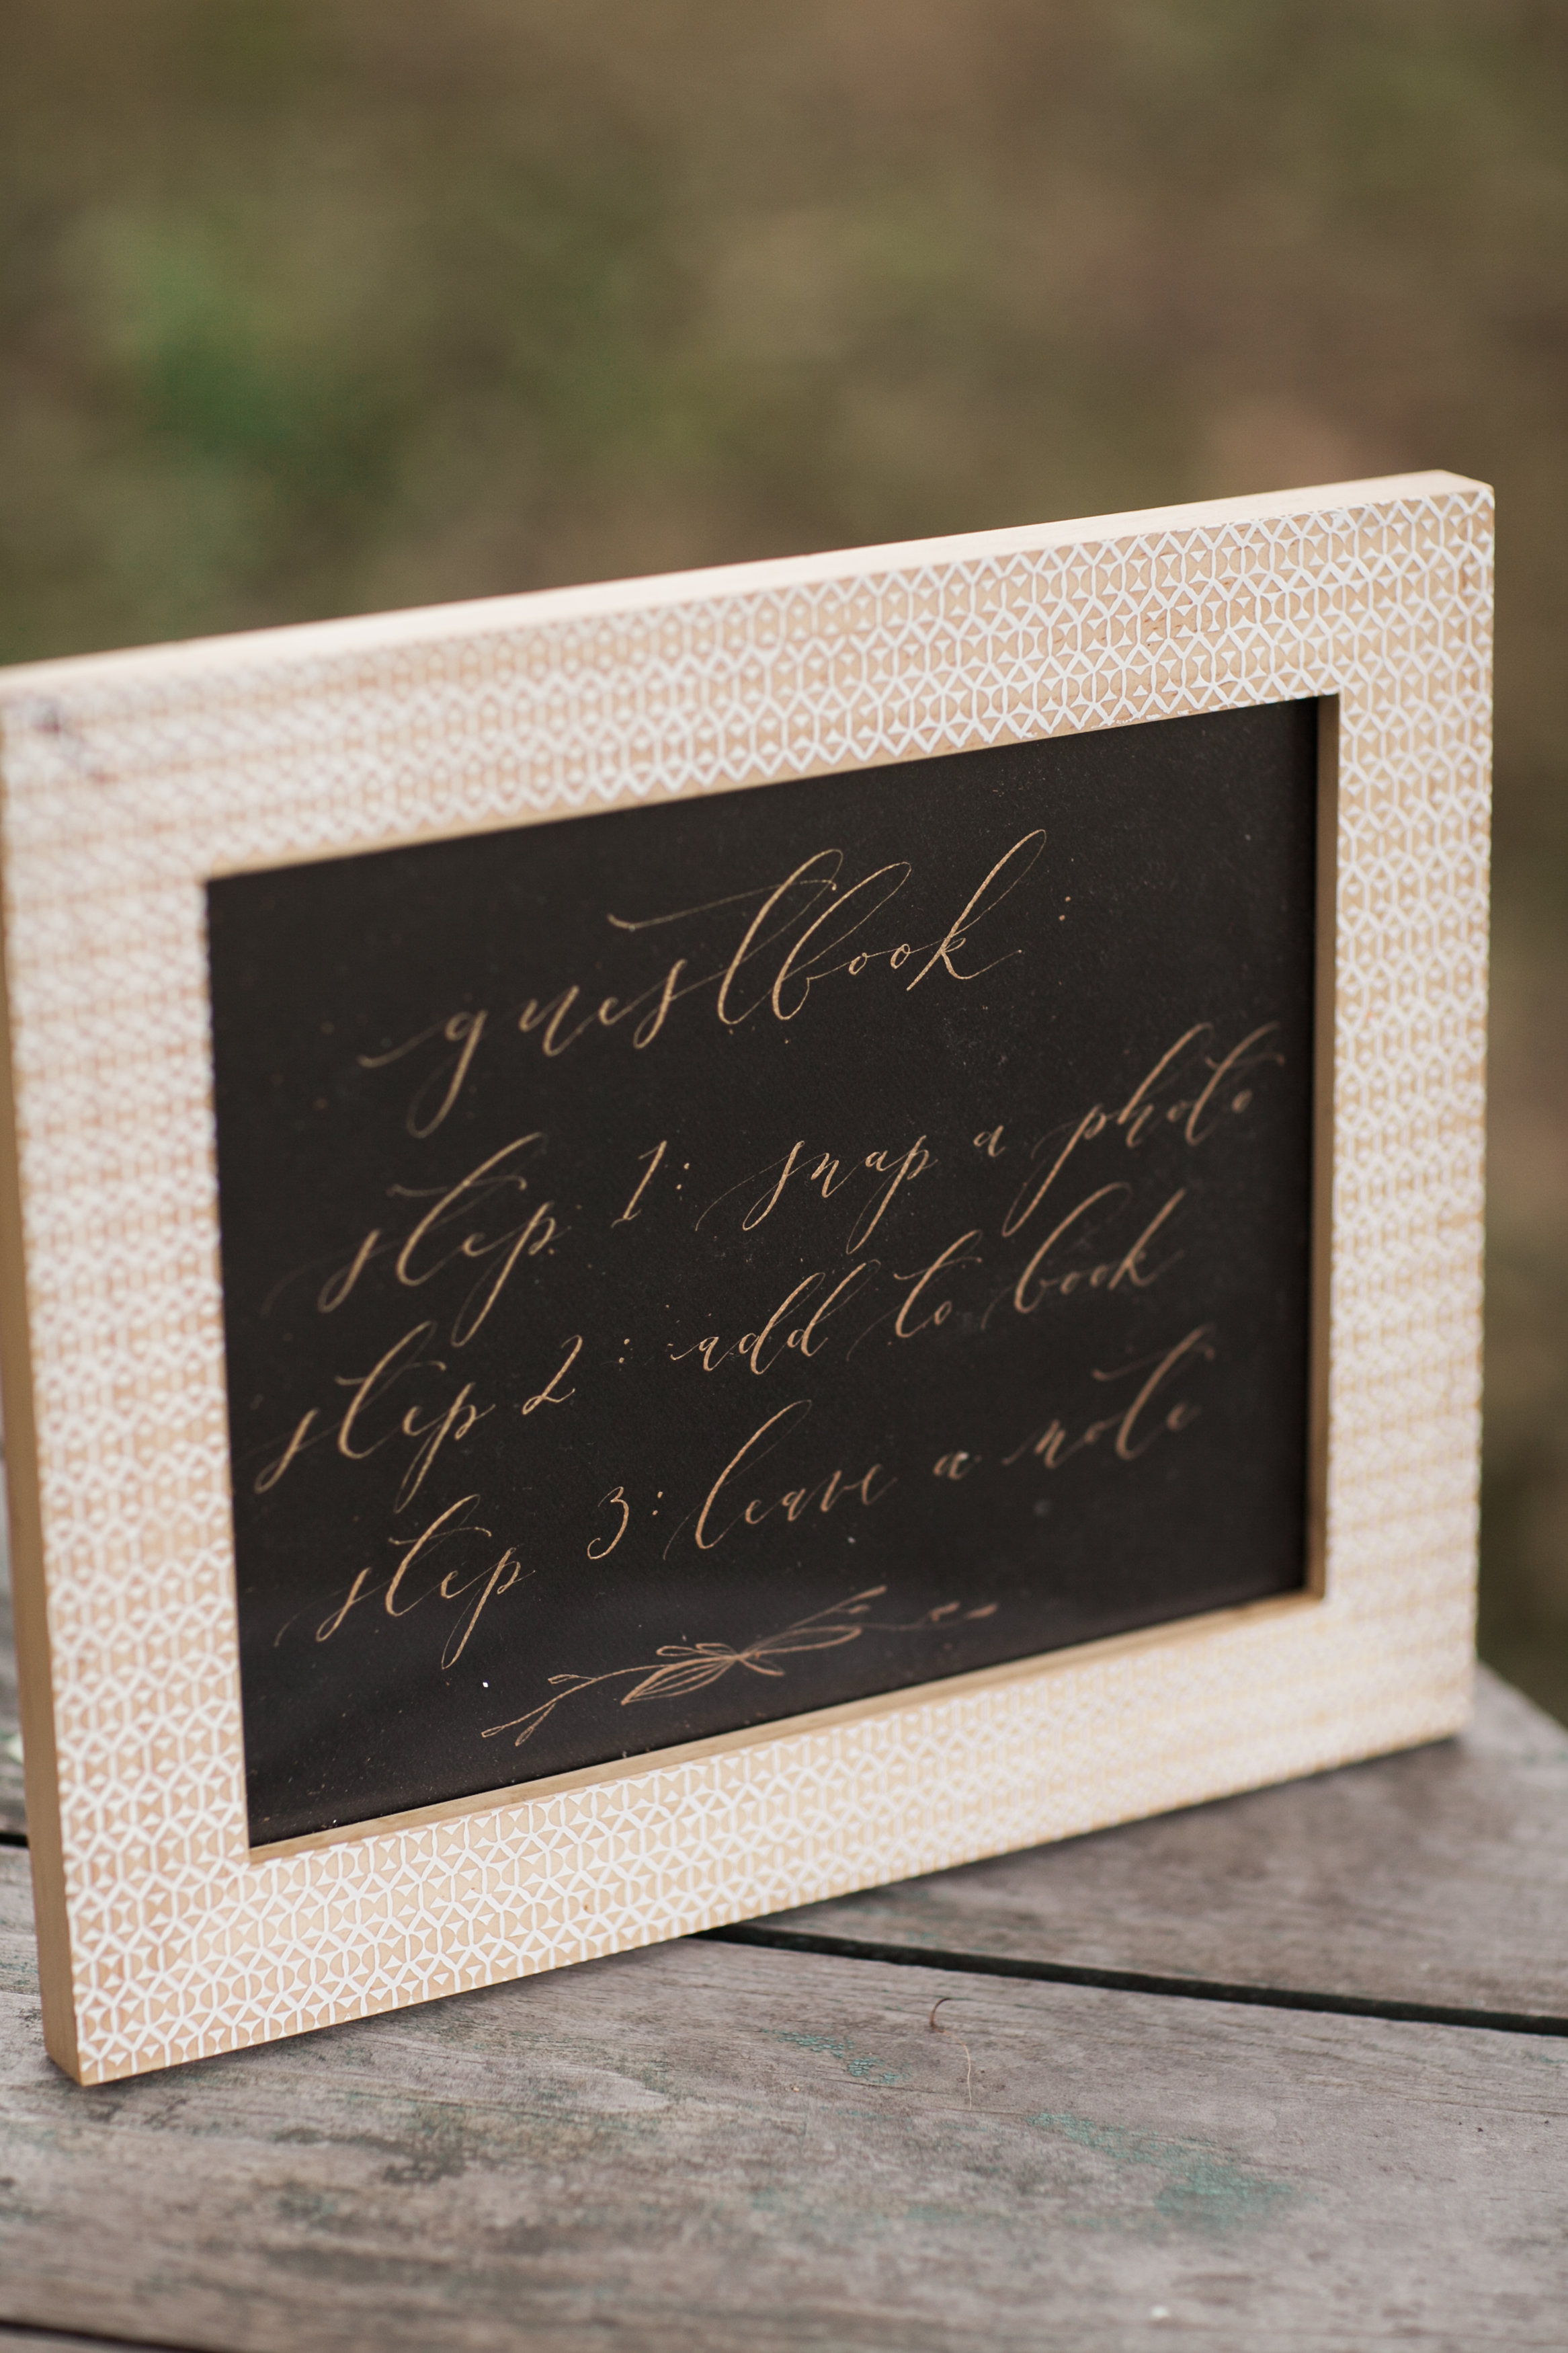 guestbook:
step 1: snap a photo
step 2: add to book
step 3: leave a note